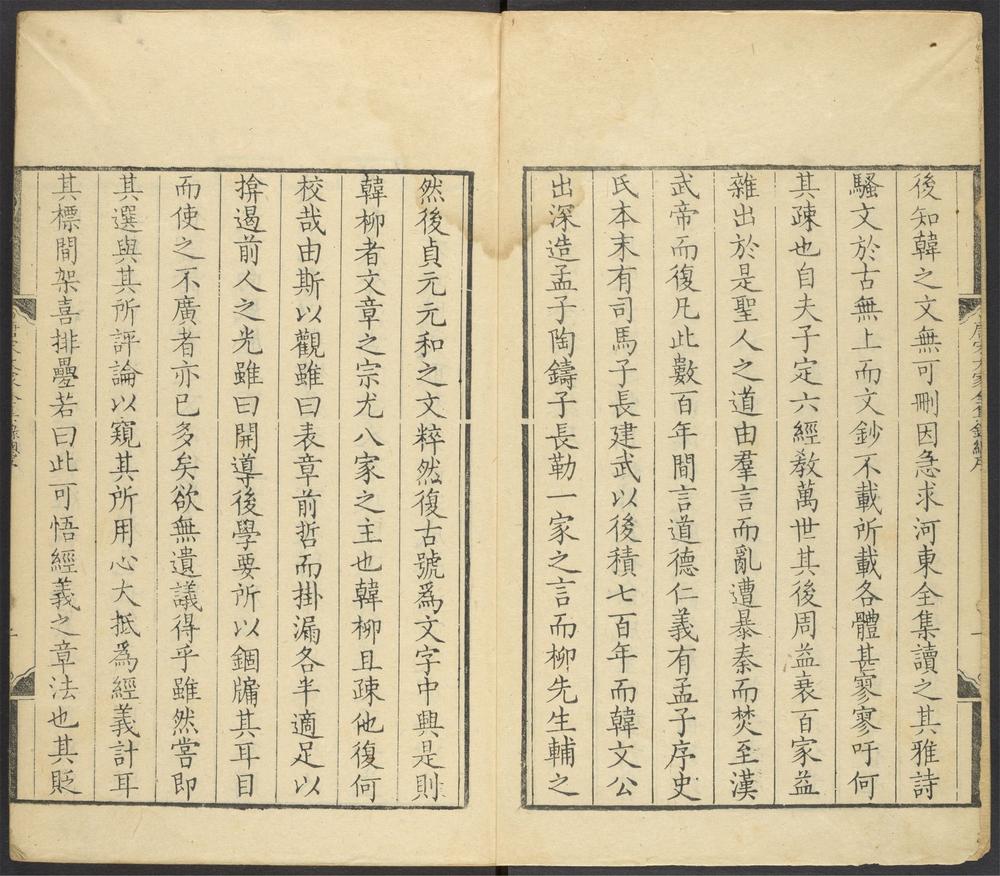 後知韓之文無可刪因急求河東全集讀之其雅詩
騷文於古無上而文鈔不載所載各體甚寥寥吁何
其疎也自夫子定六經敎萬世其後周益衰百家益
雜出於是聖人之道由羣言而亂遭暴秦而焚至漢
武帝而復凡此數百年間言道德仁義有孟子序史
氏本末有司馬子長建武以後積七百年而韓文公
出深造孟子陶鑄子長勒一家之言而柳先生輔之
然後貞元元和之文粹然復古號爲文字中興是則
韓柳者文章之宗尤八家之主也韓柳且疎他復何
校哉由斯以觀雖曰表章前哲而掛漏各半適足以
揜遏前人之光雖曰開導後學要所以錮牖其耳目
而使之不廣者亦已多矣欲無遺議得乎雖然嘗即
其選與其所評論以窺其所用心大抵爲經義計耳
其標間架喜排疊若曰此可悟經義之章法也其貶